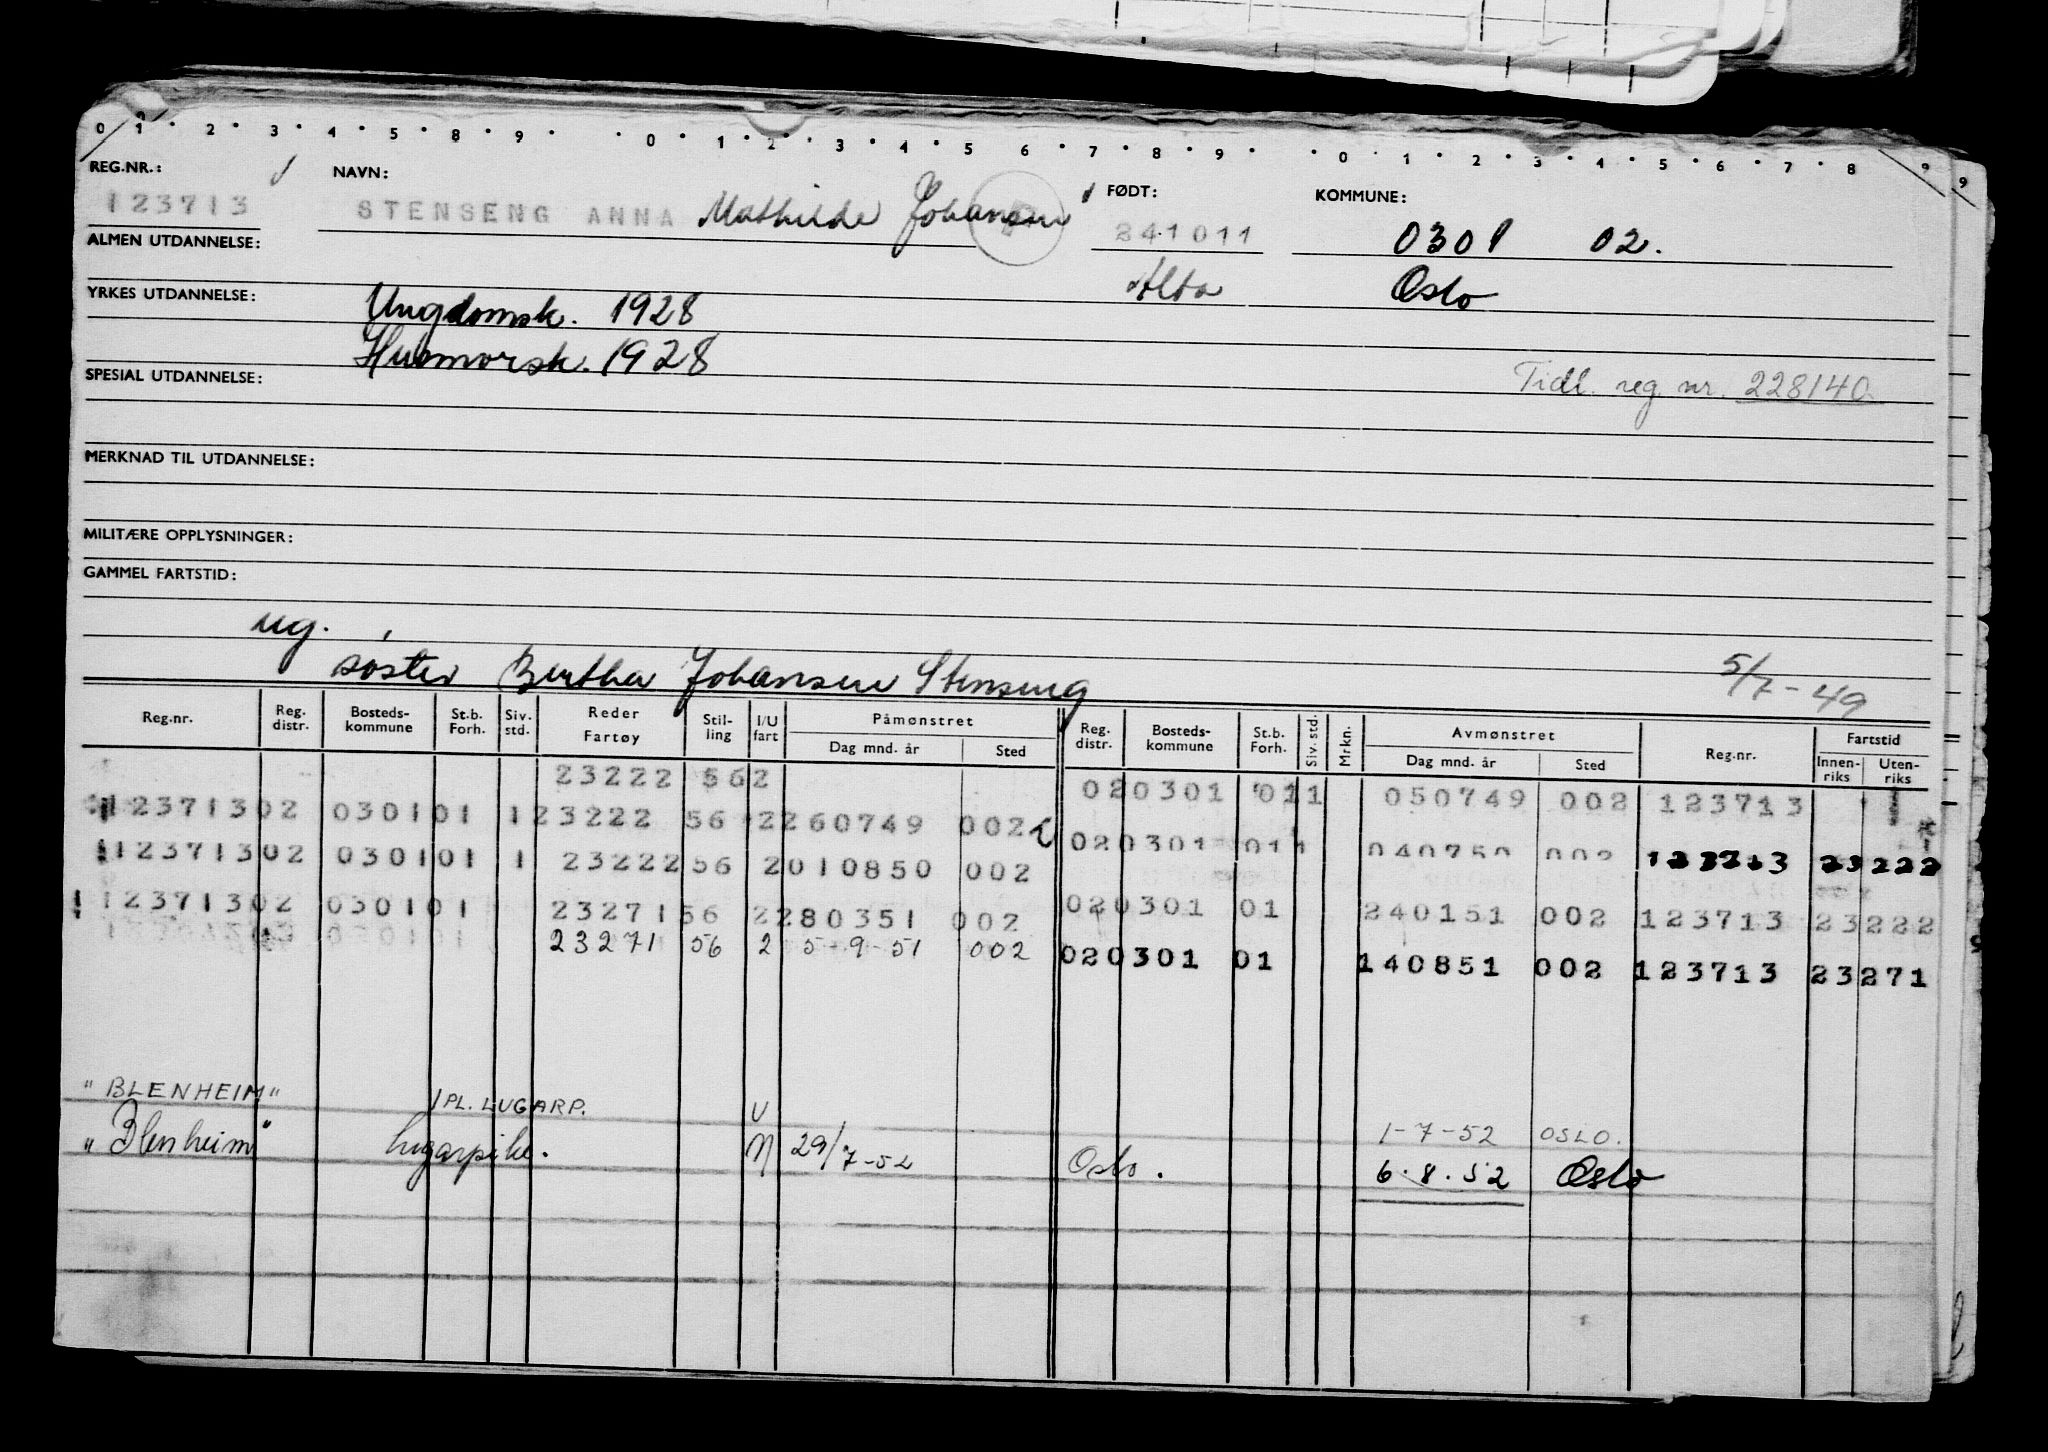 0 1 · 2 · 3 · 4 · 5 · 8 · 9 · · 0 · 1 · 2 · 3 · 4 · 5 · 6 · 7 · 8 · 9 · · 0 · 1 · 2 · 3 · 4 · 5 · 6 · 7 · 8 9 9
REG.NR.: NAVN: FØDT: KOMMUNE:
123713 STENSENG ANNA Mathilde Johansen 241011 0301 02.
ALMEN UTDANNELSE: Alta Oslo
YRKES UTDANNELSE: Ungdomsk. 1928
Husmorsk. 1928
SPESIAL UTDANNELSE: Tidl. reg. nr. 228140
MERKNAD TIL UTDANNELSE:
MILITÆRE OPPLYSNINGER:
GAMMEL FARTSTID:
ug.
søster Bertha Johansen Stenseng 5/7-49
Reg.nr. Reg. distr. Bosteds-kommune St.b. Forh. Siv. std. Reder Fartøy Stil-ling I/U fart Påmønstret Dag mnd. år Sted Reg. distr. Bosteds-kommune St.b. Forh. Siv. std. Mrkn. Avmønstret Dag mnd. år Sted Reg.nr. Fartstid Innen-riks Uten-riks
23222 562 020301 011 050749 002 123713
12371302 030101 123222 56 2260749 002 020301 011 040750 002 123713 23222
12371302 030101 1 23222 56 2010850 002 020301 01 240151 002 123713 23222
12371302 030101 23271 56 2280351 002 020301 01 140851 002 123713 23271
23271 56 2 5-9-51 002
"BLENHEIM" 1 PL. LUGARP. U 1-7-52 OSLO.
"Blenheim" lugarpike. N 29/7-52 Oslo. 6.8.52 Oslo